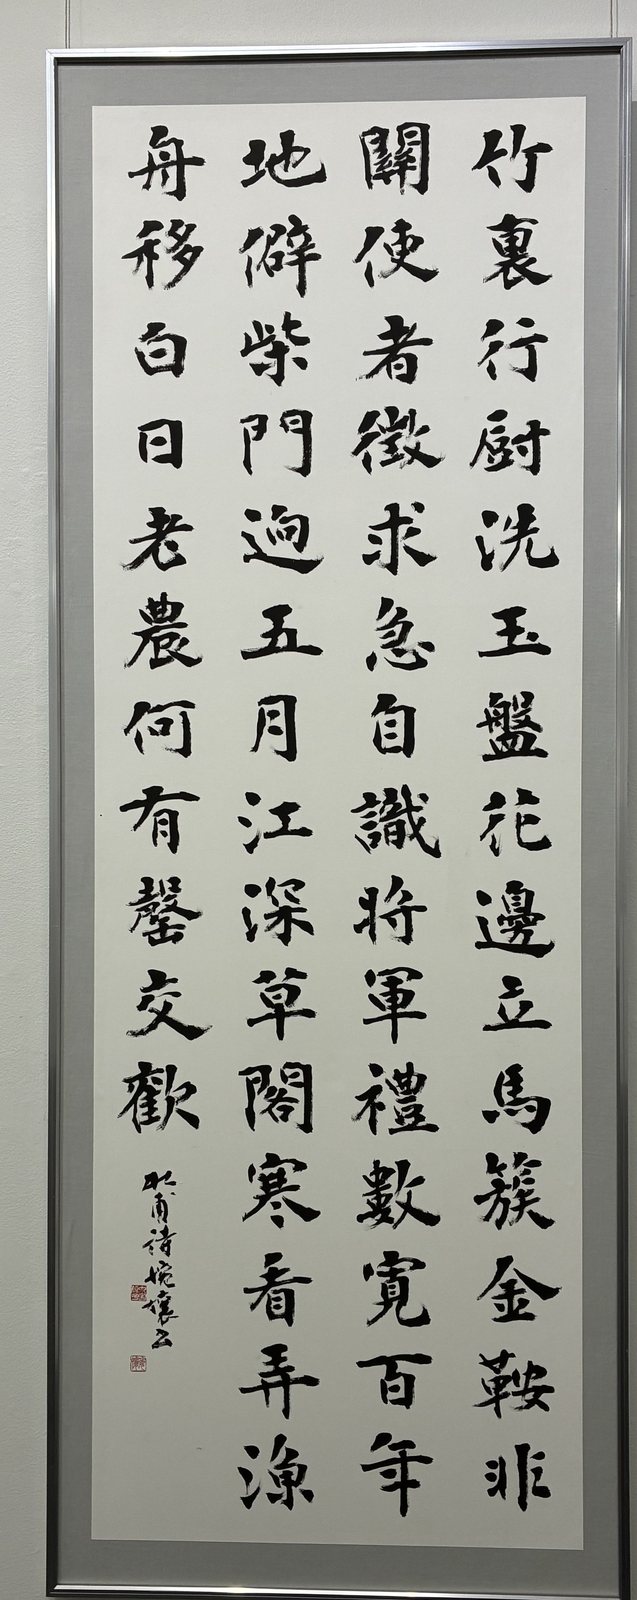 竹裏行厨洗玉盤花邊立馬簇金鞍非
關使者徵求急自識將軍禮數寛百年
地僻柴門迥五月江深草閣寒看弄漁
舟移白日老農何有罄交歡
杜甫詩婉孃書